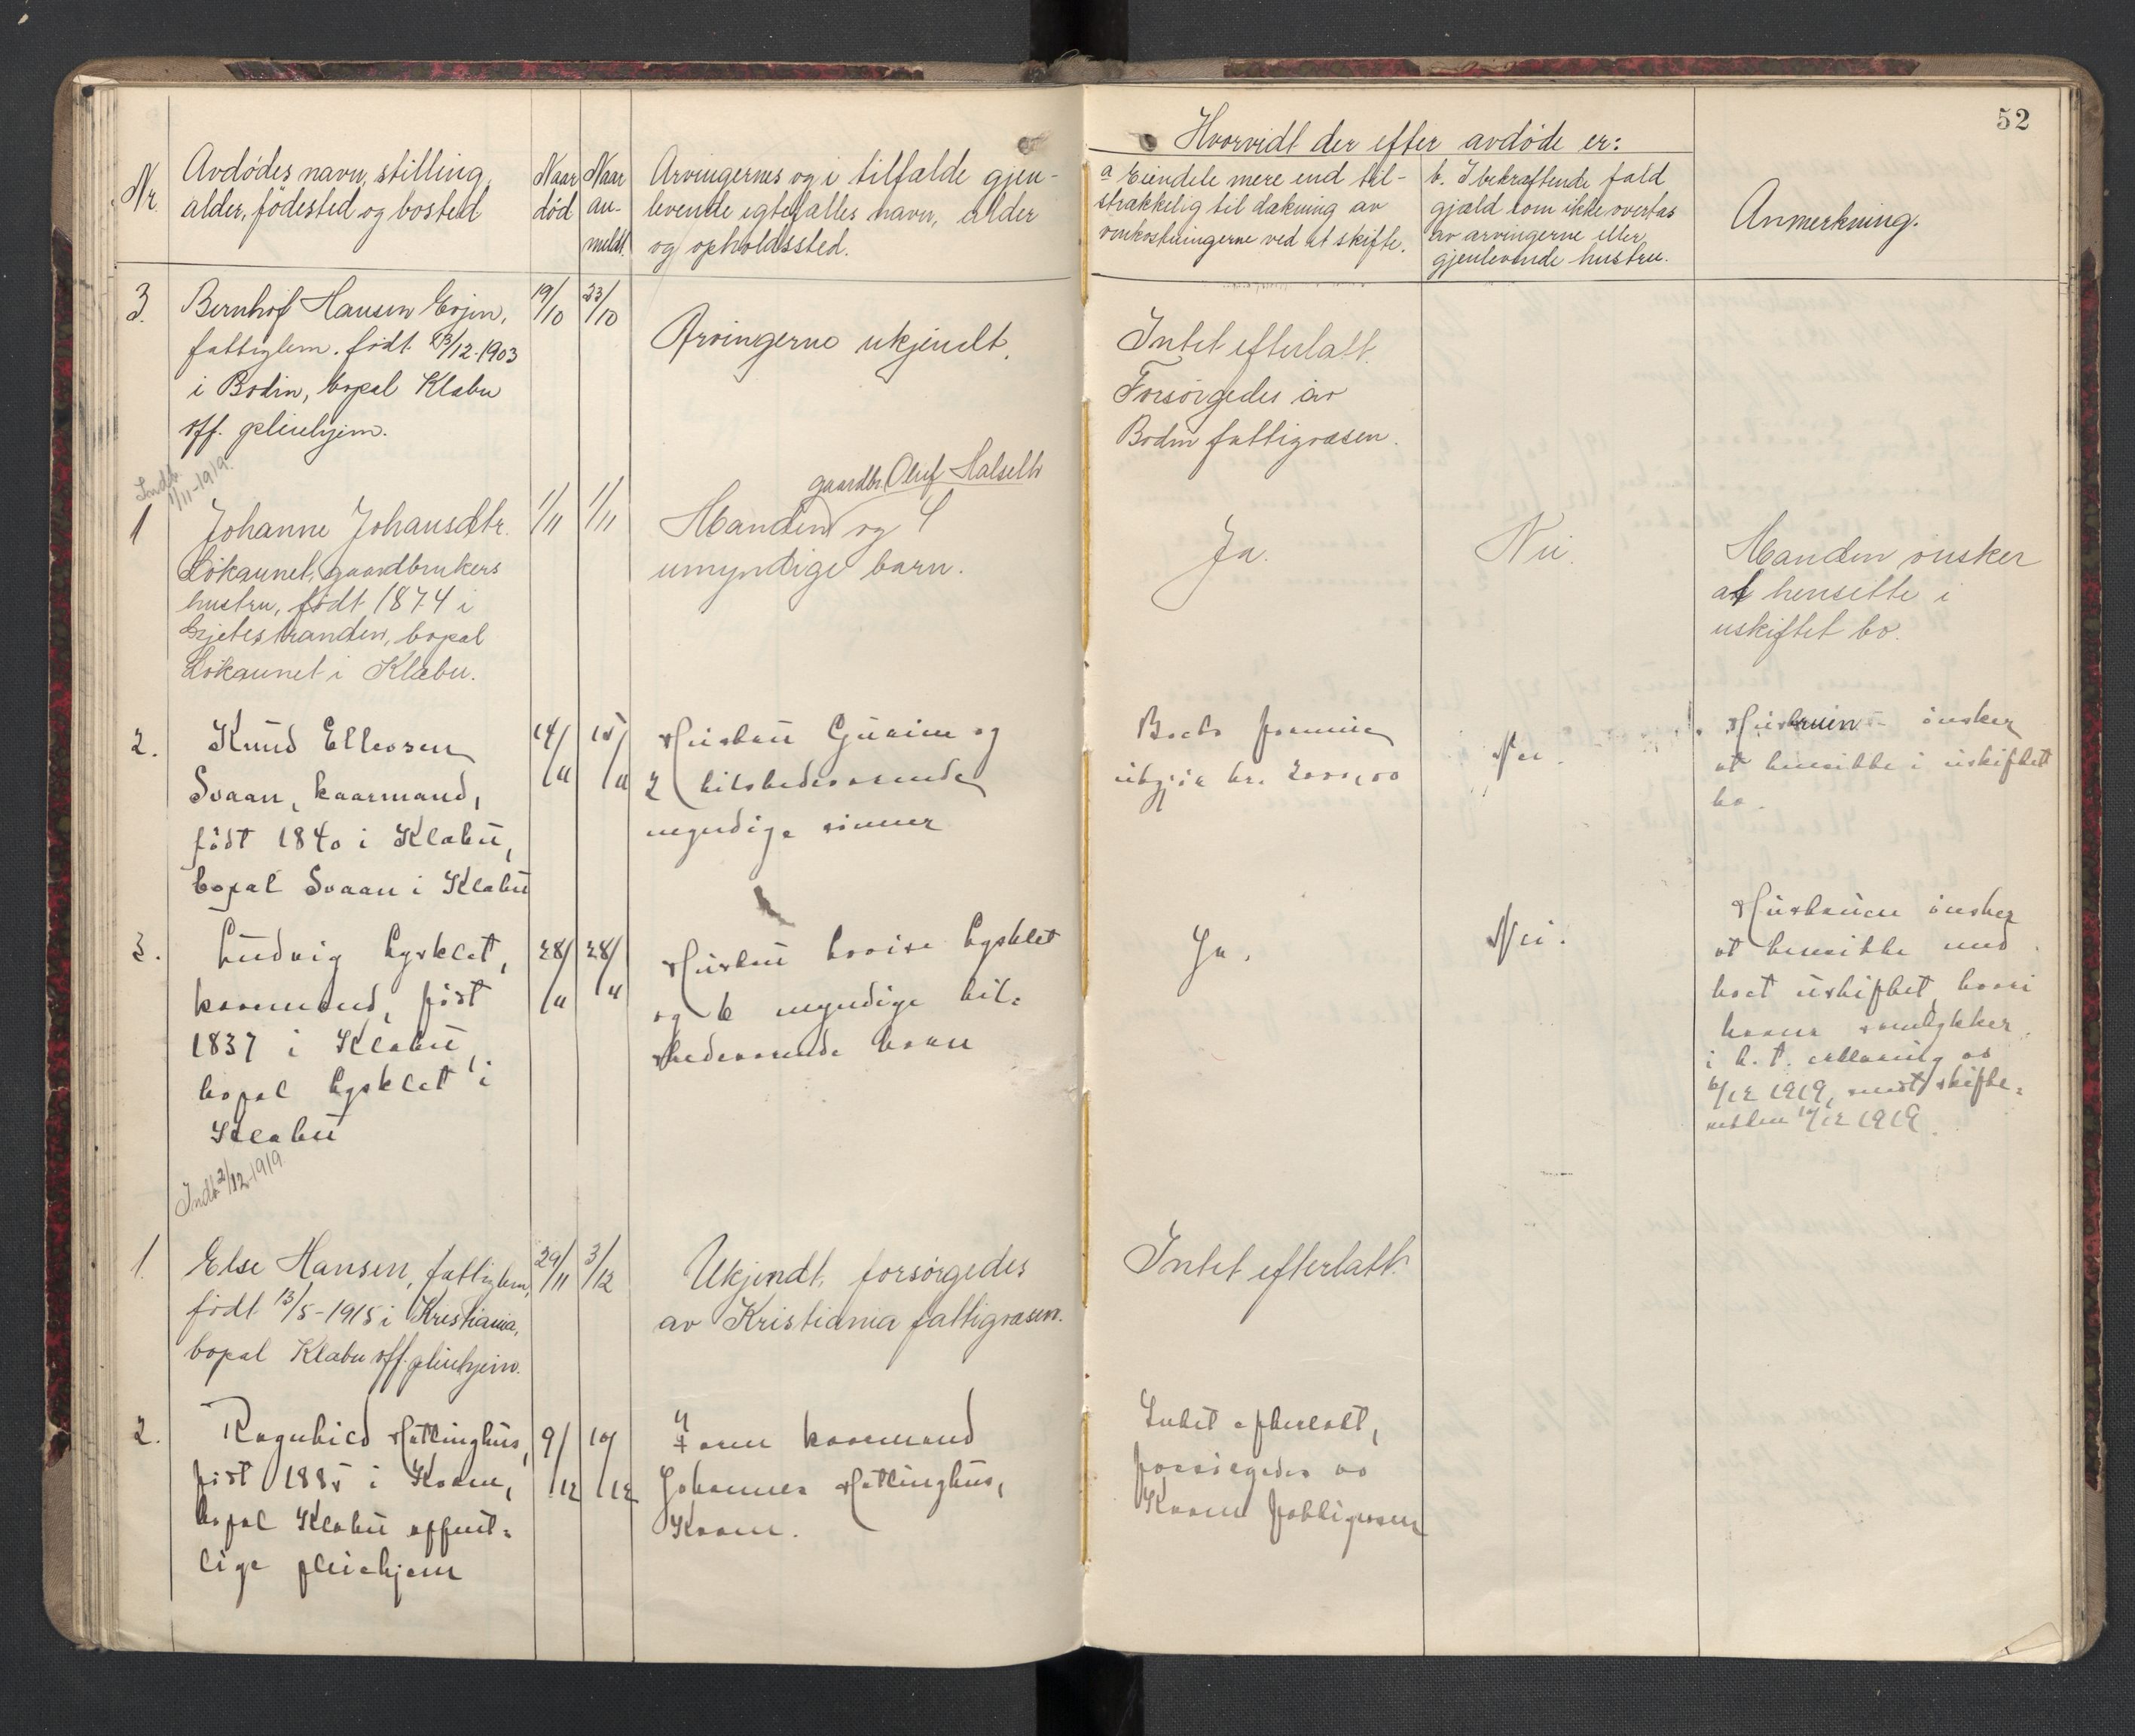 52
Nr.
Avdødes navn, stilling,
alder, fødested og bosted
Naar
død
Naar
an-
meldt.
Arvingernes og i tilfælde gjen-
levende egtefælles navn, alder
og opholdssted.
Hvorvidt der efter avdøde er:
a Eiendele mere end til-
strækkelig til dækning av
omkostningerne ved et skifte.
b. I bekræftende fald
gjæld som ikke overtas
av arvingerne eller
gjenlevende hustru.
Anmerkning.
3.
Bernhof Hansen
fattiglem. født /12-1903
i Bodin, bopæl Klæbu
off. pleiehjem.
19/10
23/10
Arvingerne ukjendt.
Intet efterlatt.
Forsørgedes av
Bodin fattigvæsen.
Indb.
1/11-1919.
1
Johanne Johansdtr.
Løkaunet, gaardbrukers
hustru, født 1874 i
bopæl
Løkaunet i Klæbu.
1/11
1/11
gaardbr. Oluf Halseth
Manden og 4
umyndige barn.
Ja.
Nei.
Manden ønsker
at hensitte i
uskiftet bo.
2.
Knud Ellevsen
Svaan, kaarmand,
født 1840 i Klæbu,
bopæl Svaan i Klæbu
14/11
15/11
Hustru og
2 tilstedeværende
myndige sønner
Boets formue
utgjør kr. 2000,00
Nei.
Hustruen ønsker
at hensitte i uskiftet
bo.
3.
Ludvig Lysklet,
kaarmand, født
1837 i Klæbu,
bopæl Lysklet i
Klæbu
28/11
28/11
Hustru Lovise Lysklet
og 6 myndige til-
stedeværende barn
Ja.
Nei.
Hustruen ønsker
at hensitte med
boet uskiftet, hvori
barna samtykker
i h. t. erklæring av
6/12 1919, skifte-
retten /12 1919.
Indb. 2/12-1919
1.
Else Hansen, fattiglem,
født 13/5-1915 i Kristiania,
bopæl Klæbu off. pleiehjem.
29/11
3/12
Ukjendt, forsørgedes
av Kristiania fattigvæsen.
Intet efterlatt.
2.
Ragnhild Hatlinghus,
født 1885 i Kvam,
bopæl Klæbu offent-
lige pleiehjem
9/12
10/12
Faren kaarmand
Johannes Hatlinghus,
Kvam.
Intet efterlatt,
forsørgedes av
Kvam fattigvæsen